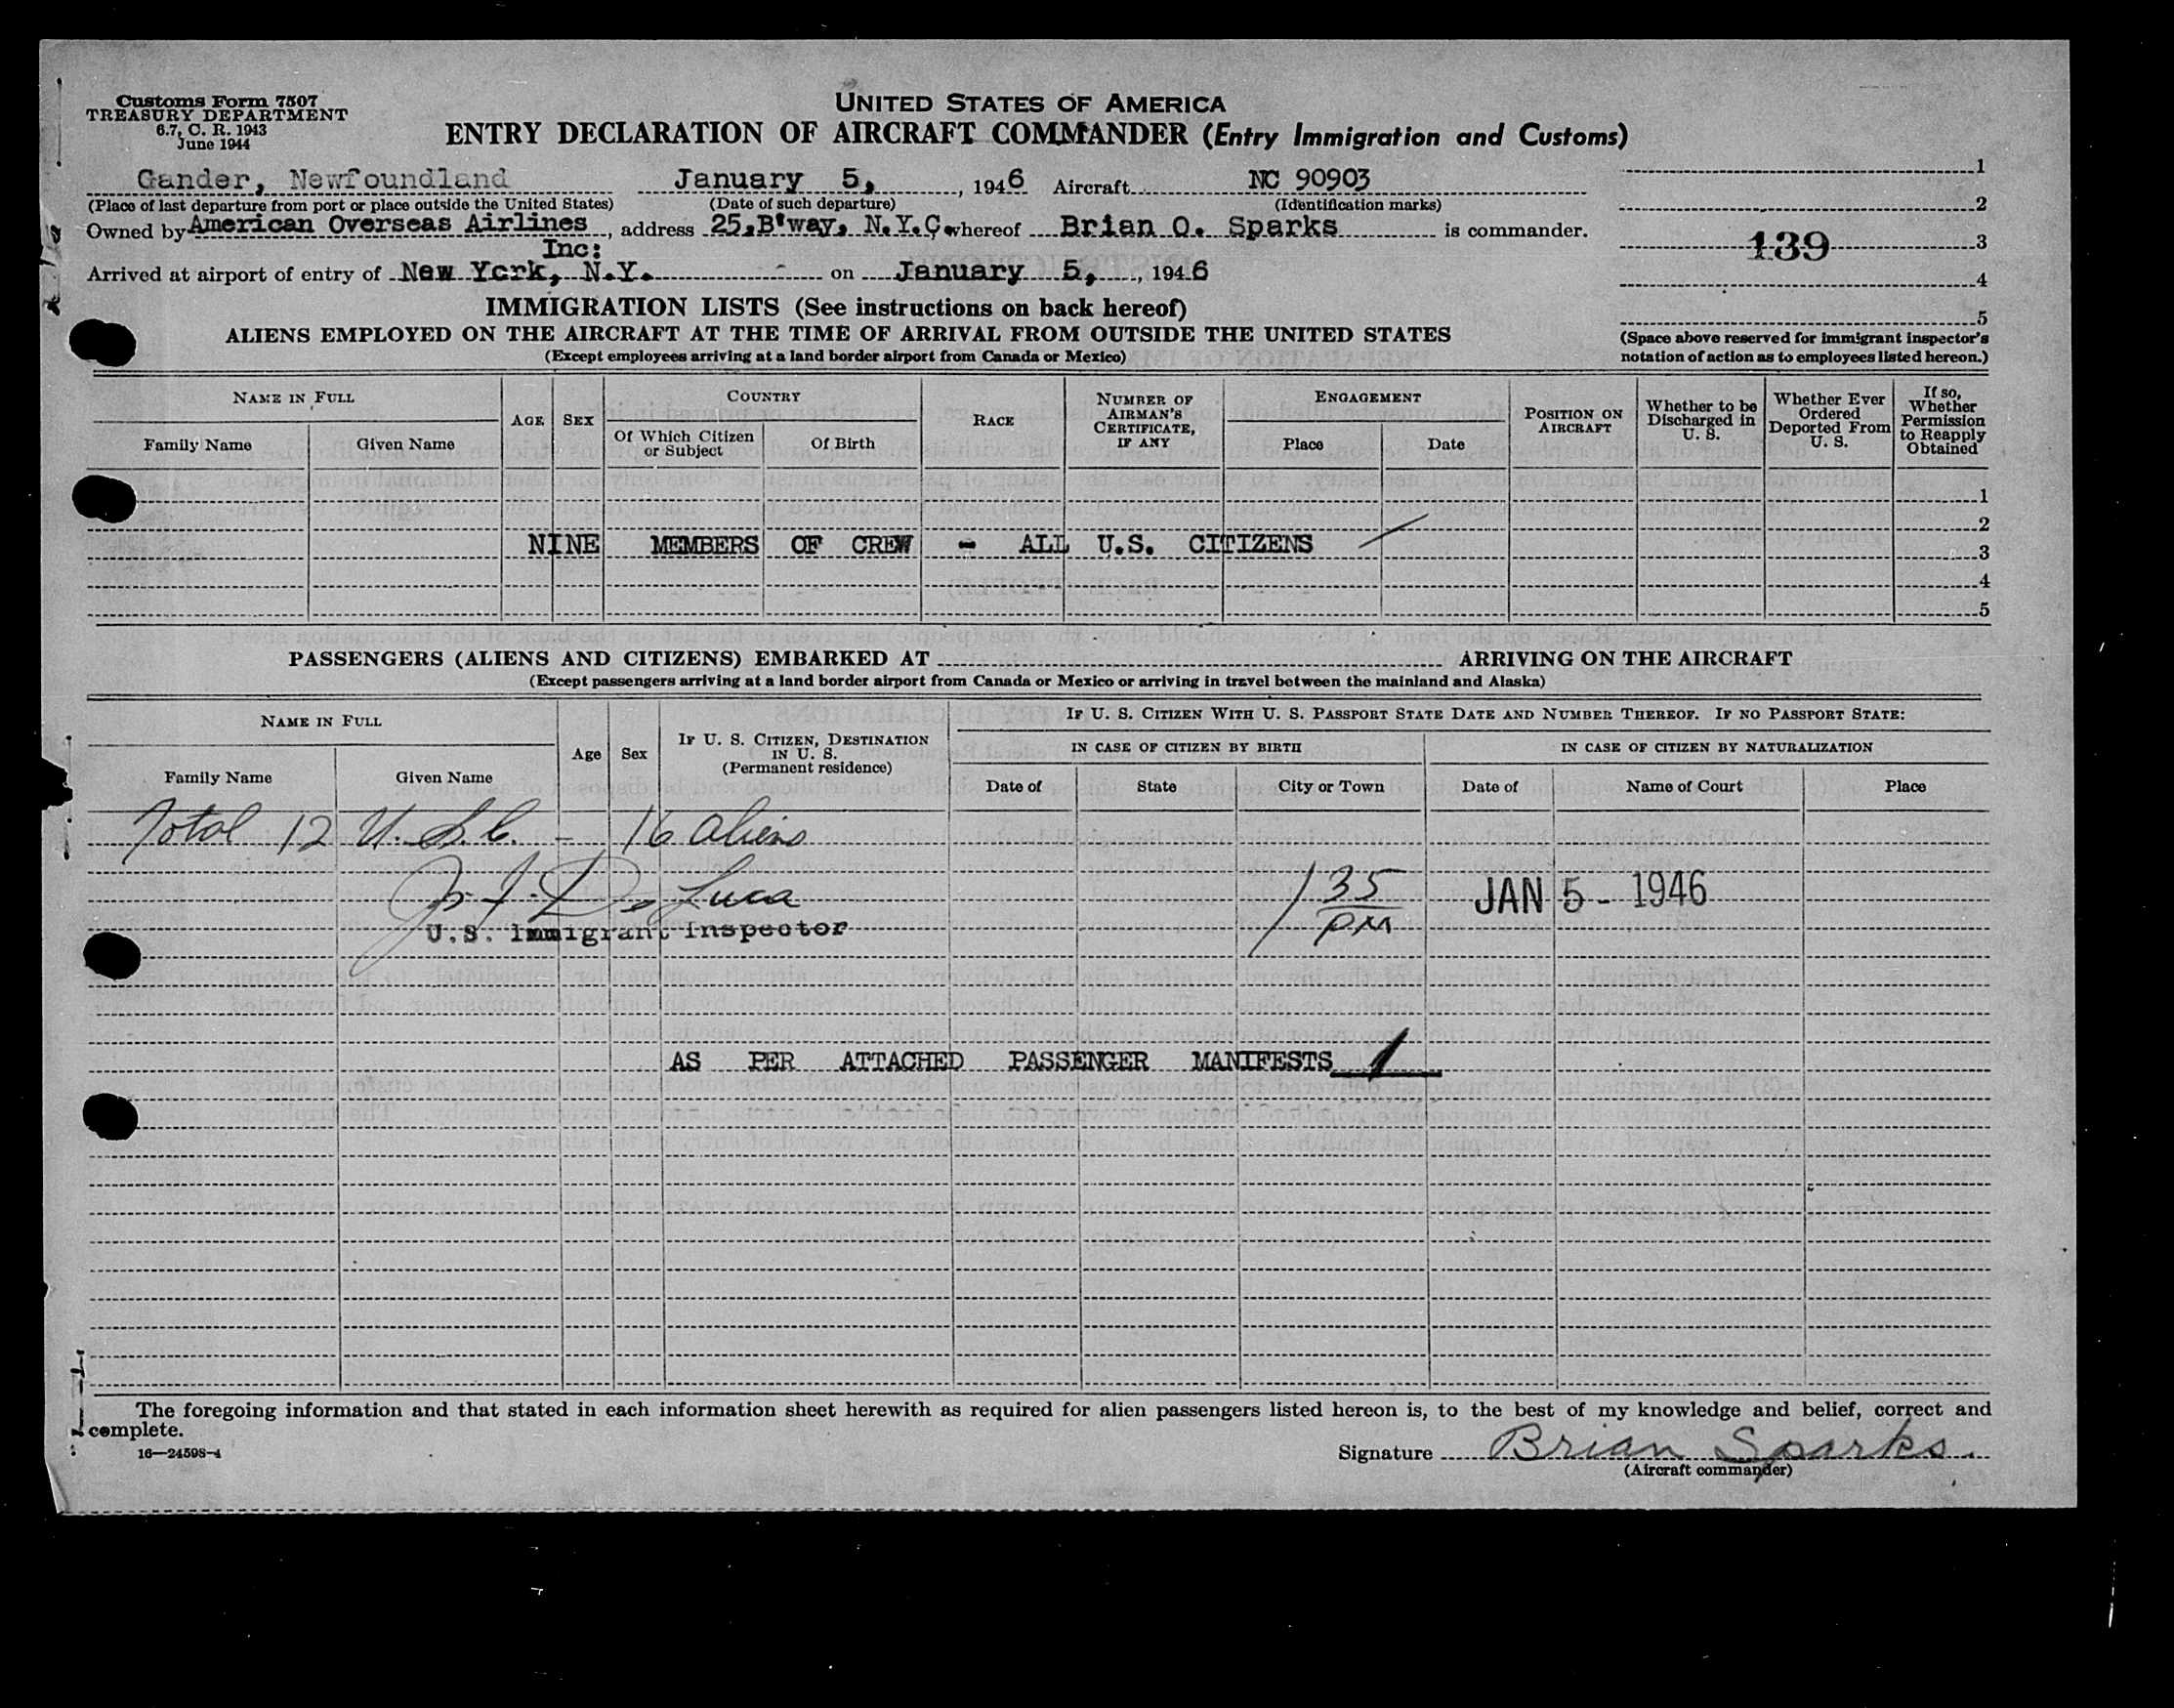 Customs Form 7507
TREASURY DEPARTMENT
6.7, C. R. 1943
June 1944
UNITED STATES OF AMERICA
ENTRY DECLARATION OF AIRCRAFT COMMANDER (Entry Immigration and Customs)
Gander, Newfoundland January 5, , 1946 Aircraft NC 90903 1
(Place of last departure from port or place outside the United States) (Date of such departure) (Identification marks) 2
Owned by American Overseas Airlines , address 25,B'way, N.Y.C. whereof Brian O. Sparks is commander.
Inc: 139 3
Arrived at airport of entry of New York, N.Y. on January 5, , 1946 4
IMMIGRATION LISTS (See instructions on back hereof) 5
ALIENS EMPLOYED ON THE AIRCRAFT AT THE TIME OF ARRIVAL FROM OUTSIDE THE UNITED STATES
(Except employees arriving at a land border airport from Canada or Mexico)
(Space above reserved for immigrant inspector's
notation of action as to employees listed hereon.)
NAME IN FULL
Family Name Given Name
AGE SEX
COUNTRY
Of Which Citizen
or Subject
Of Birth
RACE
NUMBER OF
AIRMAN'S
CERTIFICATE,
IF ANY
ENGAGEMENT
Place Date
POSITION ON
AIRCRAFT
Whether to be
Discharged in
U. S.
Whether Ever
Ordered
Deported From
U. S.
If so,
Whether
Permission
to Reapply
Obtained
1
2
NINE MEMBERS OF CREW - ALL U.S. CITIZENS 3
4
5
PASSENGERS (ALIENS AND CITIZENS) EMBARKED AT ARRIVING ON THE AIRCRAFT
(Except passengers arriving at a land border airport from Canada or Mexico or arriving in travel between the mainland and Alaska)
NAME IN FULL
Family Name Given Name
Age Sex
IF U. S. CITIZEN, DESTINATION
IN U. S.
(Permanent residence)
IF U. S. CITIZEN WITH U. S. PASSPORT STATE DATE AND NUMBER THEREOF. IF NO PASSPORT STATE:
IN CASE OF CITIZEN BY BIRTH IN CASE OF CITIZEN BY NATURALIZATION
Date of State City or Town Date of Name of Court Place
Total 12 U.S.C. - 16 aliens
J. J. De Luca 1 35 PM JAN 5 - 1946
U.S. Immigrant Inspector
AS PER ATTACHED PASSENGER MANIFESTS 1
The foregoing information and that stated in each information sheet herewith as required for alien passengers listed hereon is, to the best of my knowledge and belief, correct and
complete.
16—24598-4
Signature Brian Sparks.
(Aircraft commander)